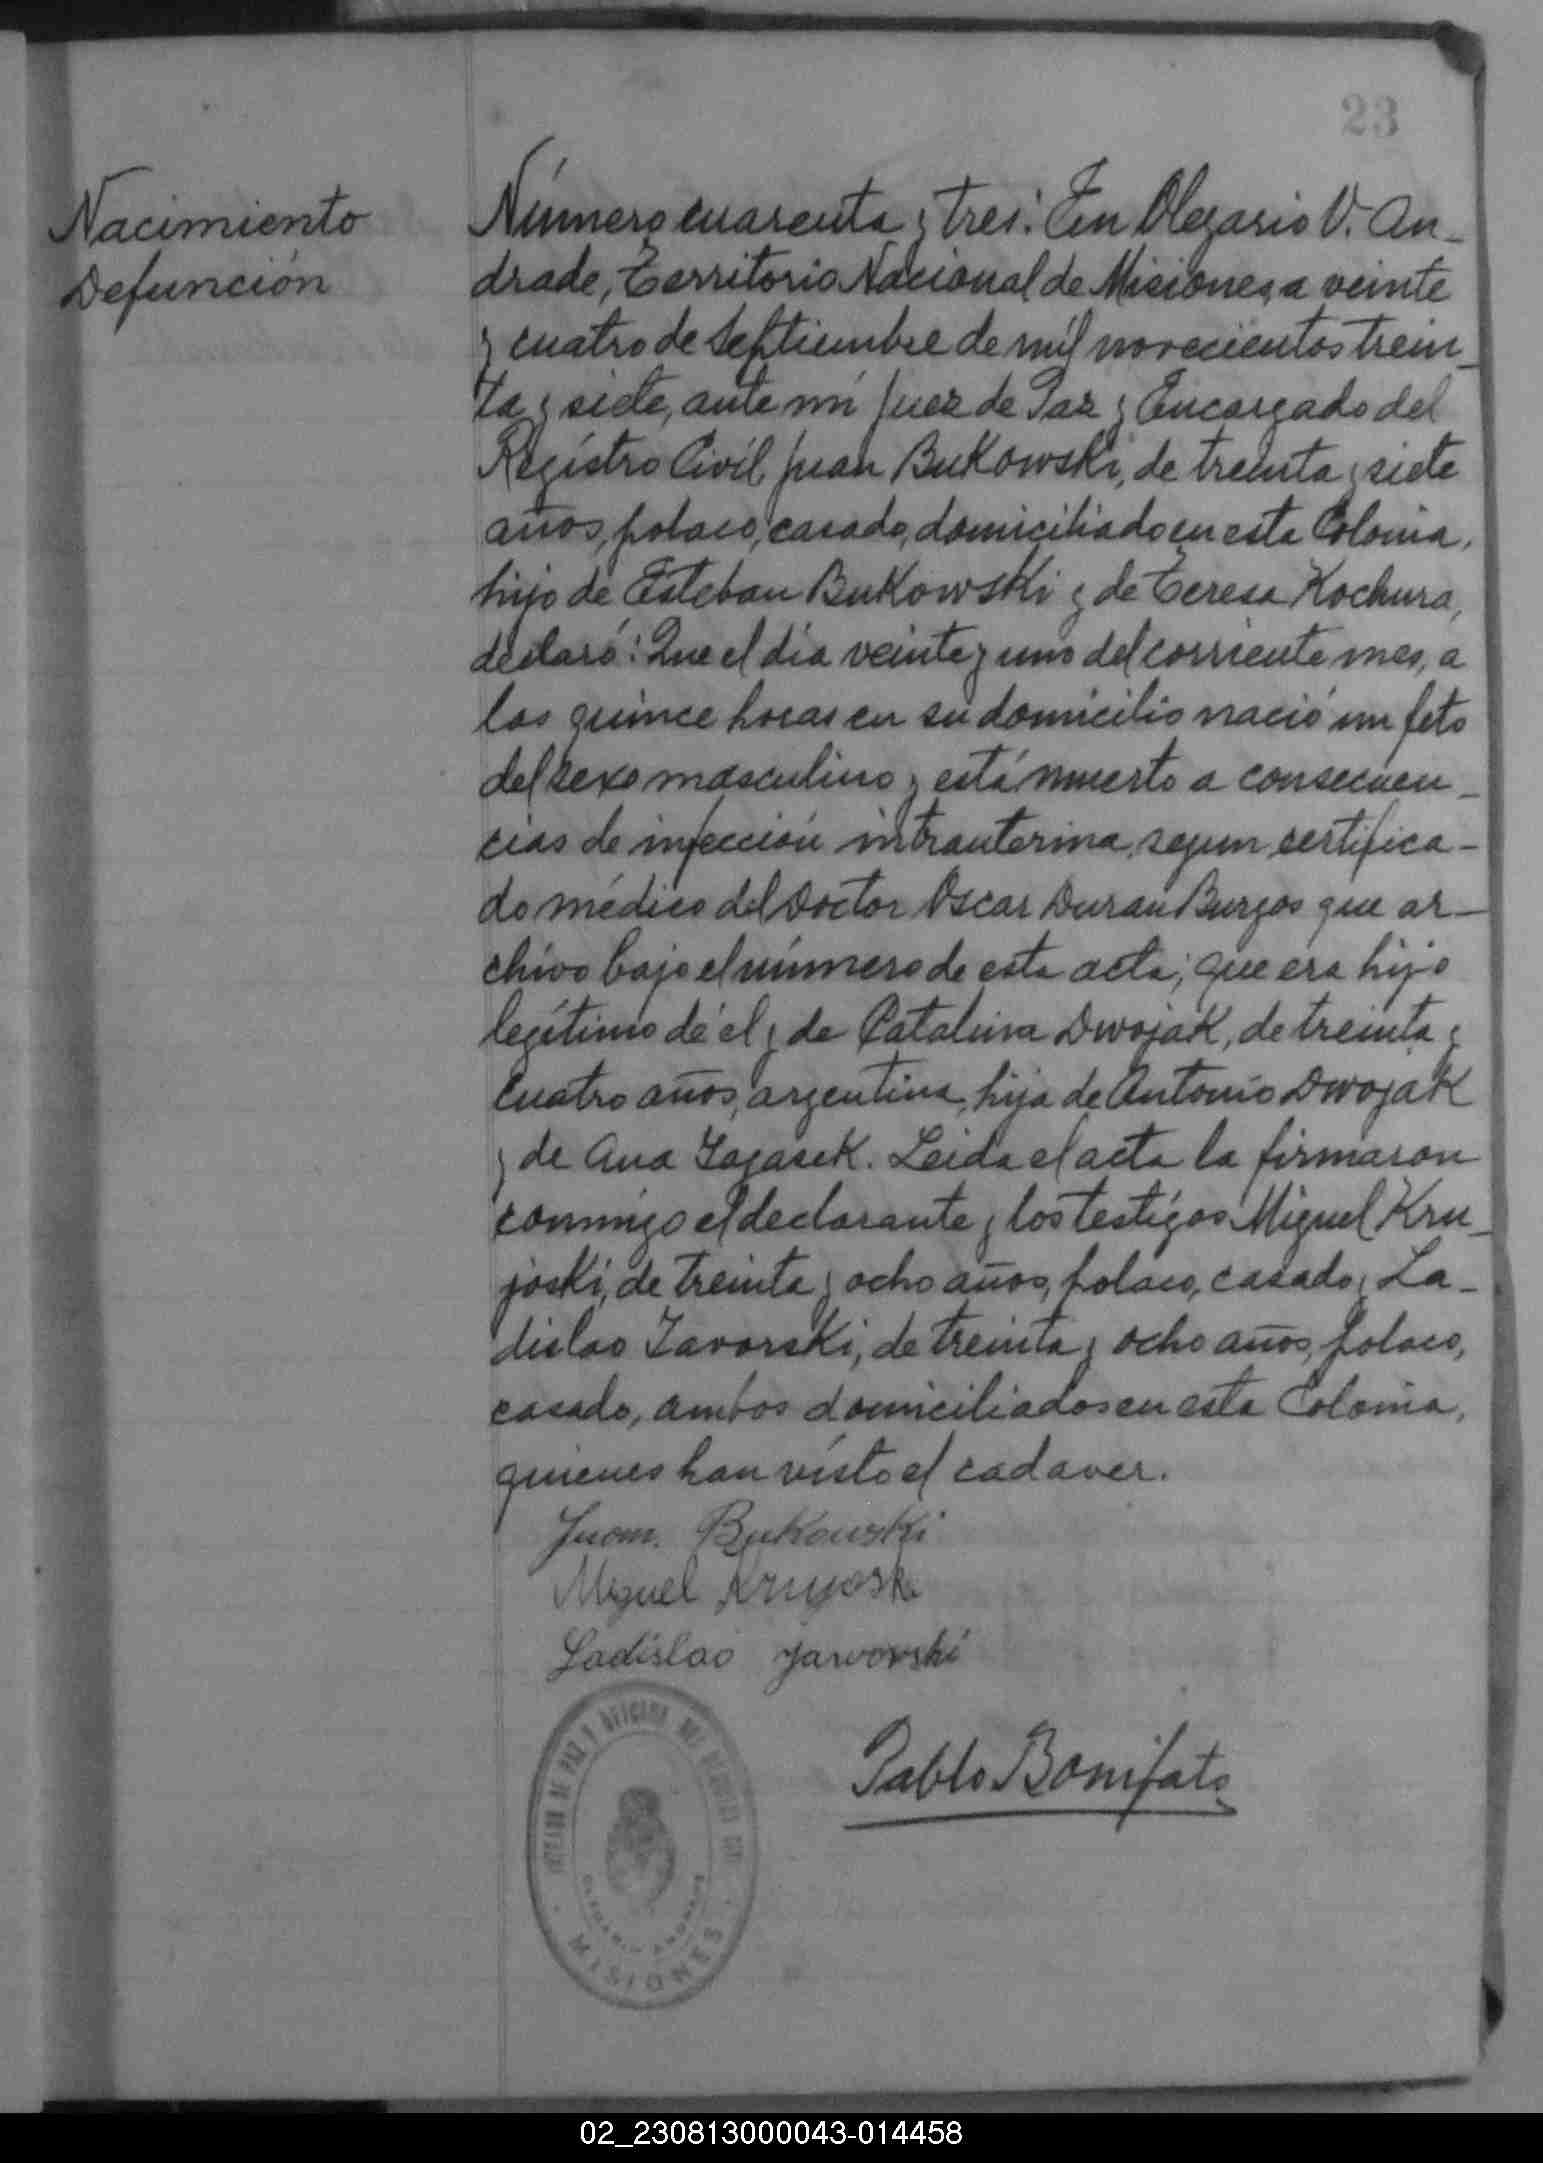 23
Nacimiento
Defunción
Número cuarenta y tres: En Olegario V. An-
drade, Territorio Nacional de Misiones, a veinte
y cuatro de Septiembre de mil novecientos trein-
ta y siete, ante mi Juez de Paz y Encargado del
Registro Civil, Juan Bukowski, de treinta y siete
años, polaco, casado, domiciliado en esta Colonia,
hijo de Esteban Bukowski y de Teresa Kochura,
declaró: Que el día veinte y uno del corriente mes, a
las quince horas en su domicilio nació un feto
del sexo masculino y está muerto a consecuen-
cias de infección intrauterina, segun certifica-
do médico del Doctor Oscar Duran Burgos que ar-
chivo bajo el número de esta acta; que era hijo
legítimo de él y de Catalina Dwojak, de treinta y
cuatro años, argentina, hija de Antonio Dwojak
y de Ana Zagasek. Leida el acta la firmaron
conmigo el declarante y los testigos Miguel Kru-
joski, de treinta y ocho años, polaco, casado y La-
dislao Zavorski, de treinta y ocho años, polaco,
casado, ambos domiciliados en esta Colonia,
quienes han visto el cadaver.
Juan. Bukowski
Miguel Krujoski
Ladislao Jarvovski
Pablo Bonifato
JUZGADO DE PAZ Y OFICINA DEL REGISTRO CIVIL
OLEGARIO ANDRADE
MISIONES
02_230813000043-014458